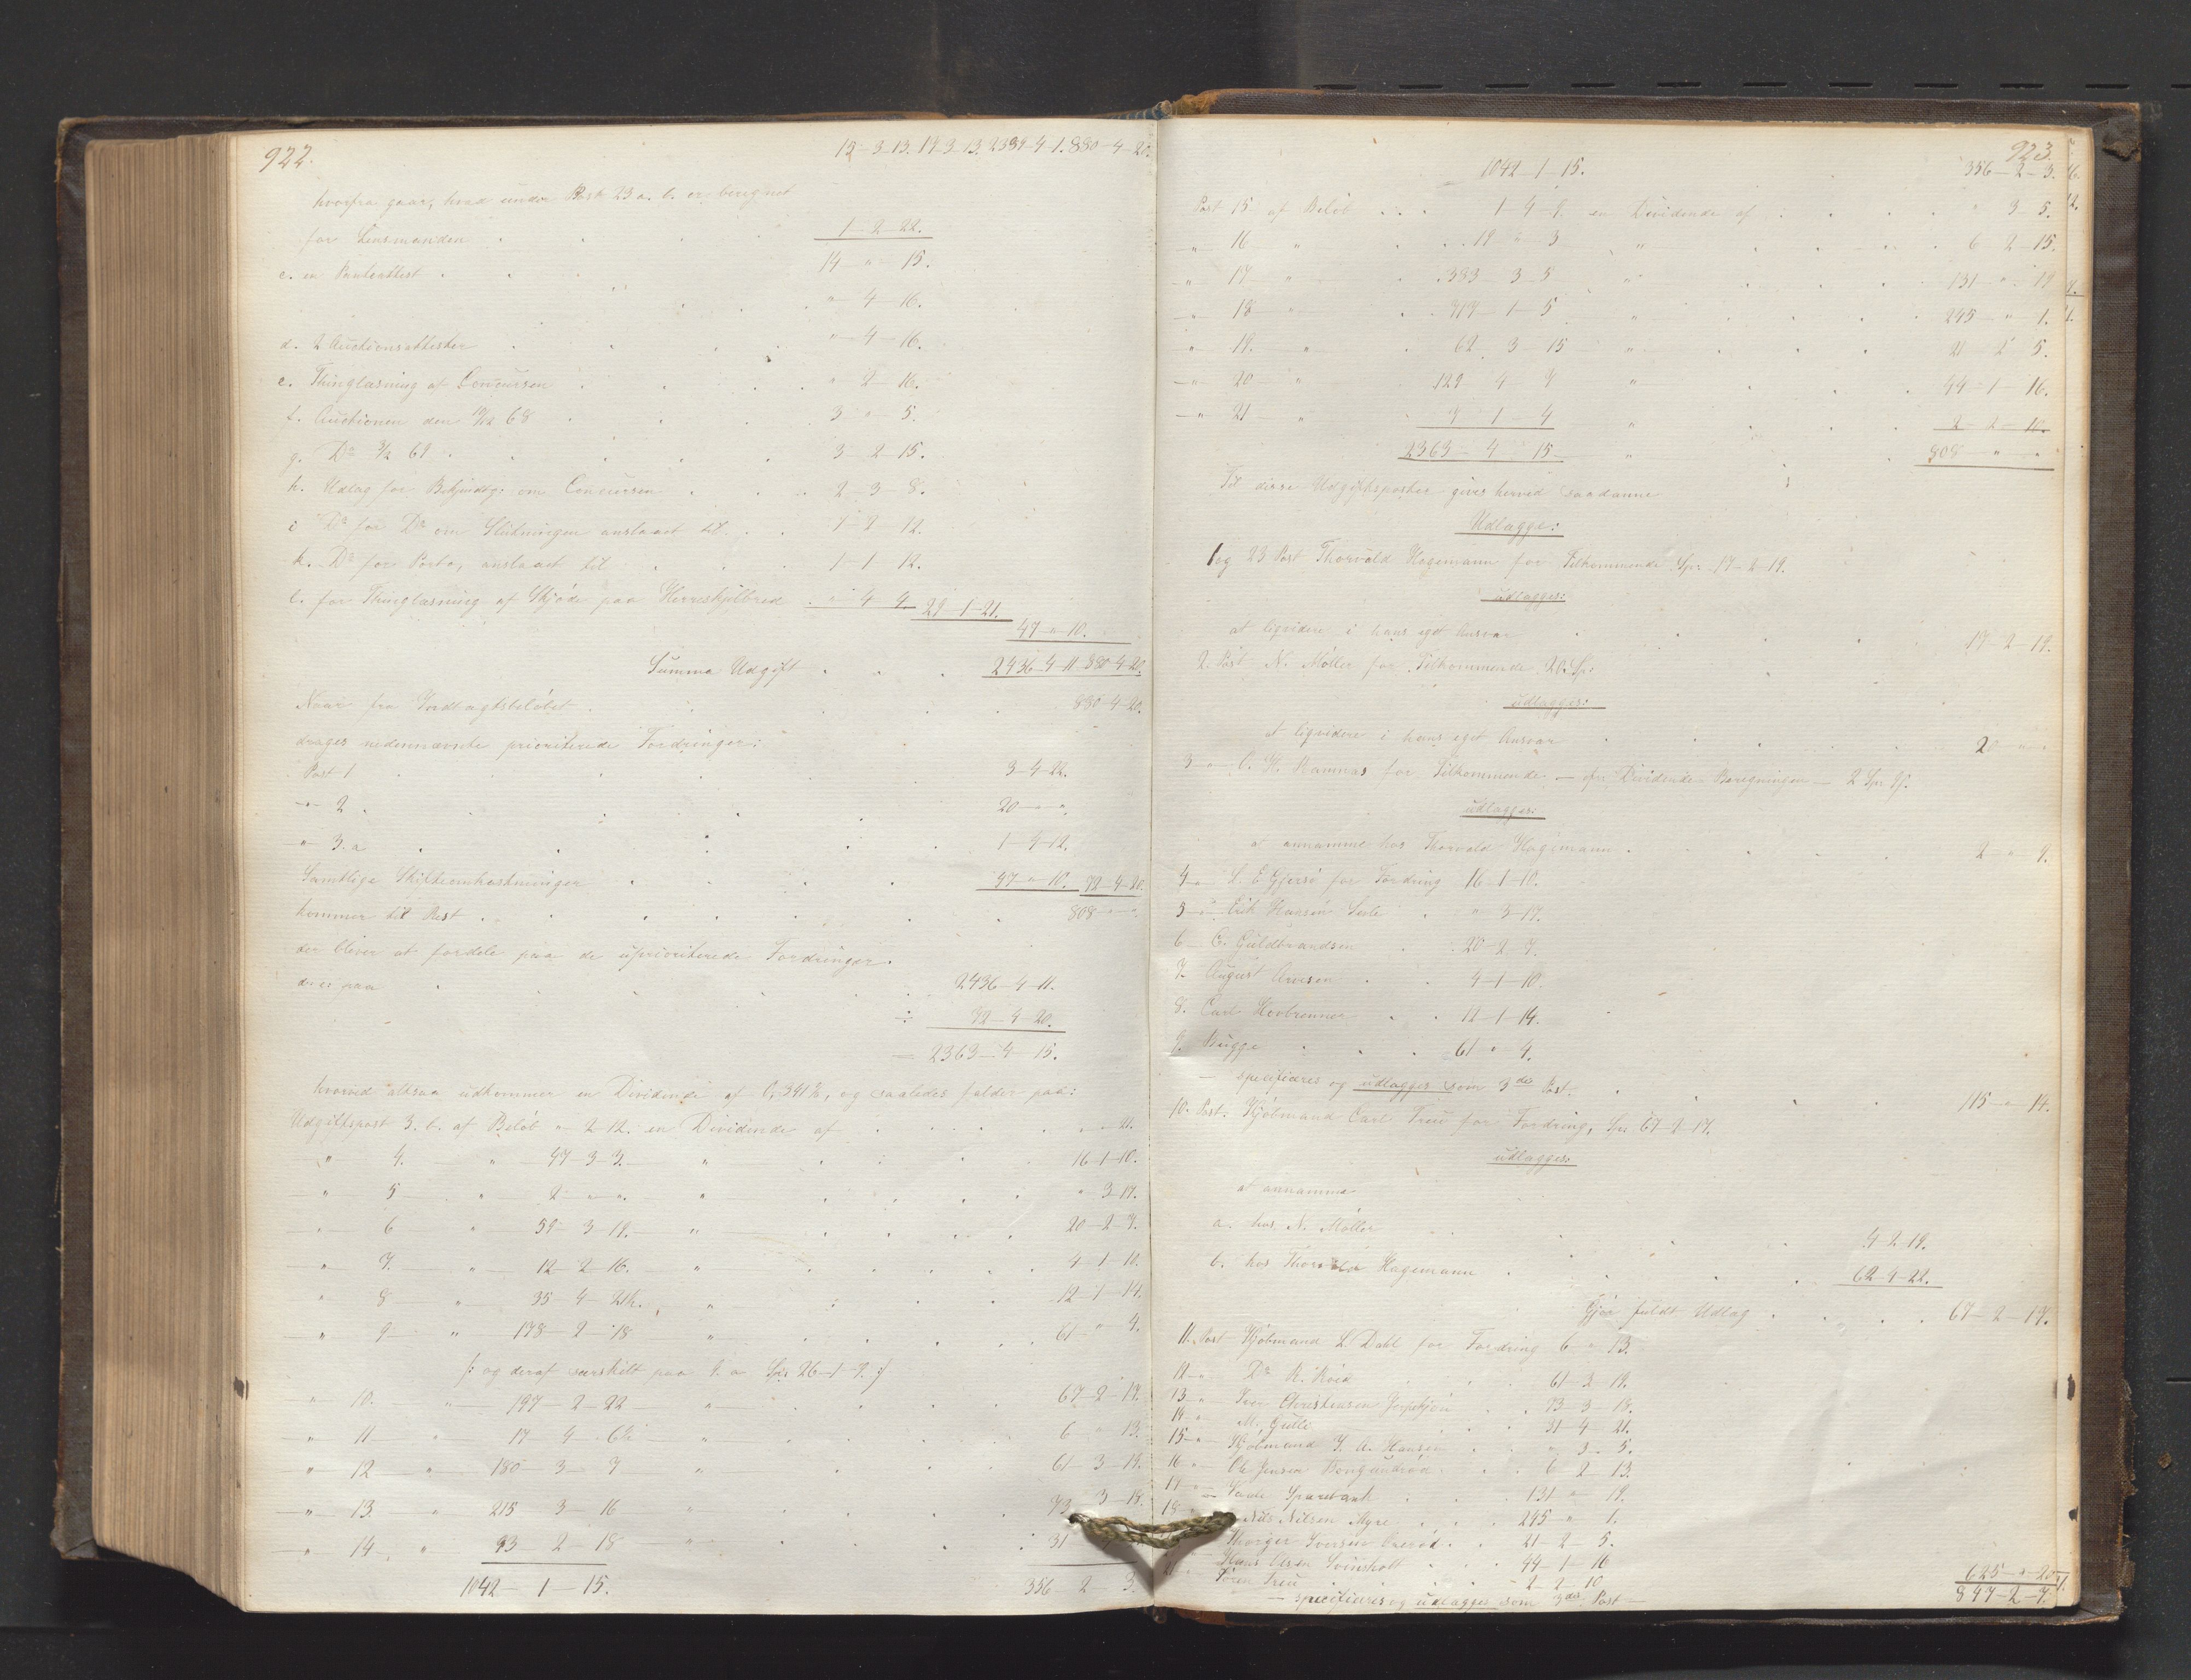 922.
12-3-13. 17-3-13. 2389-4-1. 880-4-20.
hvorfra gaar, hvad under Post 23 a. b. er beregnet
for Lensmanden 1-2-22.
14 " 15.
c. en Panteattest
" 4-16.
" 4-16.
d. 2 Auctionsattester
e. Thinglæsning af Concursen " 2-16.
f. Auctionen den 68 3 " 5.
g. Do 3/2 69 3-2-15.
h. Udlæg for Bekjendtg: om Concursen 2-3-8.
i Do for Do om Slutningen anslaaet til 1-2-12.
k. Do for Porto, anslaaet til 1-1-12.
l. for Thinglæsning af Skjøde paa " 4-4. 29-1-21.
47-"-10.
Summa Udgift 2436-4-11 880-4-20.
Naar fra Indtægtsbeløbet 880-4-20.
drages nedennævnte prioriterede Fordringer:
Post 1 3-4-22.
-"- 2. 20-"-"
-"- 3. a 1-4-12.
Samtlige Skifteomkostninger 47-"-10. 72-4-20.
kommer til Rest 808-"-".
der bliver at fordele paa de uprioriterede Fordringer.
d: e: paa 2436-4-11.
÷ 72-4-20.
= 2363-4-15.
hvorved altsaa udkommer en Dividende af 0,341, og saaledes falder paa:
Udgiftspost 3. b. af Beløb "-2-12. en Dividende af "-"-21.
" 4. " 47-3-3. " 16-1-10.
" 5 " 2-"-". " "-3-17.
" 6 " 59-3-19. " 20-2-7.
" 7. " 12-2-16. " 4-1-10.
" 8 " 35-4-21½. " 12-1-14.
" 9 " 178-2-18 " 61-"-4.
/: og deraf særskilt paa 9. a Spd 26-1-9. :/
" 10. " 197-2-22 " 67-2-17.
" 11 " 17-4-6½ " 6 " 13.
" 12 " 180-3-7 " 61-3-19.
" 13. " 215 3-16 " 73-3-18.
" 14 " 93 2-18 " 31
1042-1-15. 356-2-3.
923.
1042-1-15. 356-2-3.
Post 15 af Beløb 1-4-9 en Dividende af " 3-5.
" 16 " 19 " 3 " 6 2-15.
" 17 " 383 3-5 " 131 " 19
" 18 " 717-1-5 " 245-"-1.
" 19. " 62 3-15 " 21-2-5.
" 20 " 129-4-7 " 44-1-16.
" 21 " 7-1-4 " 2-2-10.
2363-4-15 " 808 " "
Til disse Udgiftsposter gives herved saadanne
Udlægge:
1 og 23 Post Thorvald Hagemann for Tilkommende Spd 17-2-19.
udlægges:
at liqvidere i hans eget Ansvar 17-2-19.
2. Post N. Møller for Tilkommende 20 Sp:
udlægges:
at liqvidere i hans eget Ansvar 20-"-"
3-"- O. H. Ramnæs for Tilkommende - cfr Dividende Beregningen - 2 Spd 9 s.
udlægges:
at annamme hos Thorvald Hagemann 2-"-9.
4-"- L. E. Gjersø for Fordring 16-1-10.
5-"- Erik Hansen " 3-17.
6- C. Guldbrandsen 20-2-7.
7- August Arvesen 4-1-10.
8. Carl 12-1-14.
9. Bugge 61 " 4.
- specificeres og udlægges som 3die Post. 115-"-14.
10. Post. Kjøbmand Carl Treu for Fordring, Spd 67-2-17.
udlægges:
at annamme
a. hos N. Møller 4-2-19.
b. hos Thorvald Hagemann 62-4-22.
Gjør fuldt Udlæg 67-2-17.
11. Post Kjøbmand L. Dahl for Fordring 6 " 13.
12-"- Do K. 61-3-19.
13-"- Iver Christensen 73-3-18.
14-"- M. Gulli 31-4-21.
15-"- Kjøbmand J. A. Hansen " 3-5.
16-"- Ole Jensen 6-2-13.
17-"- Sparebank 131 " 19.
18 Nils Nilsen Myre 245 " 1.
21-2-5.
Hans Olsen 44-1-16
Søren Treu 2-2-10
- specificeres og udlægges som 3die Post - 625-"-20
847-2-7.